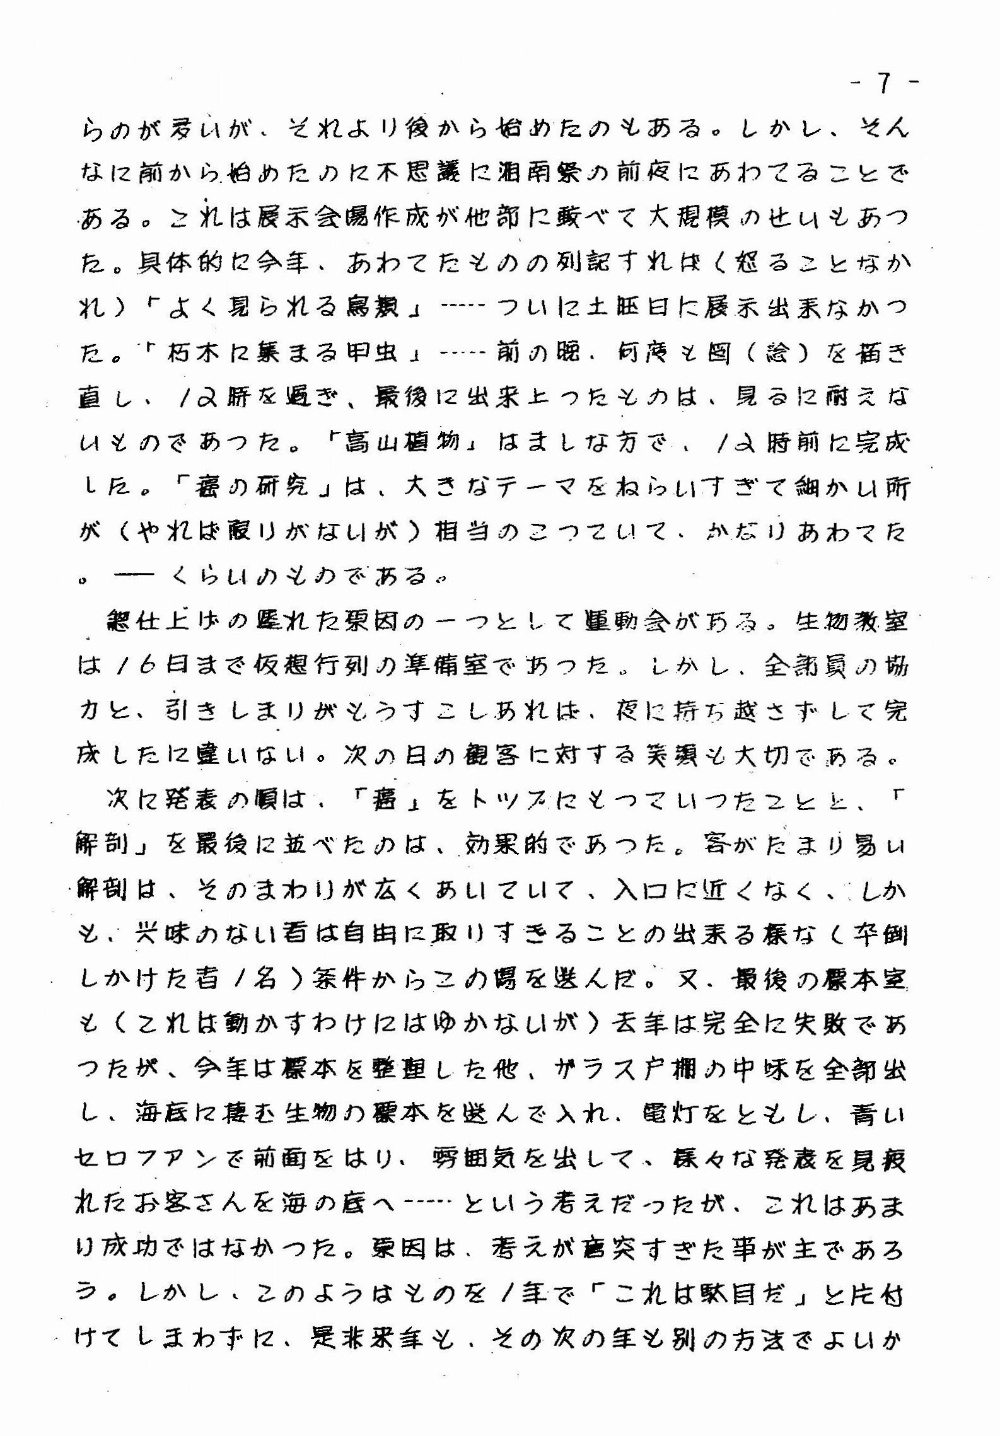 - 7 -
らのが多いが、それより後から始めたのもある。しかし、そん
なに前から始めたのに不思議に湘南祭の前夜にあわてることで
ある。これは展示会場作成が他部に較べて大規模のせいもあつ
た。具体的に今年、あわてたものの列記すれば(怒ることなか
れ)「よく見られる鳥類」……ついに土旺日に展示出来なかつ
た。「朽木に集まる甲虫」……前の晩、何度も図(絵)を描き
直し、12時を過ぎ、最後に出来上つたものは、見るに耐えな
いものであつた。「高山植物」はましな方で、12時前に完成
した。「癌の研究」は、大きなテーマをねらいすぎて細かい所
が(やれば限りがないが)相当のこつていて、かなりあわてた
。― くらいのものである。
総仕上げの遅れた原因の一つとして運動会がある。生物教室
は16日まで仮想行列の準備室であつた。しかし、全部員の協
力と、引きしまりがもうすこしあれば、夜に持ち越さずして完
成したに違いない。次の日の観客に対する笑顔も大切である。
次に発表の順は、「癌」をトップにもつていつたことと、「
解剖」を最後に並べたのは、効果的であつた。客がたまり易い
解剖は、そのまわりが広くあいていて、入口に近くなく、しか
も、興味のない者は自由に取りすぎることの出来る様な(卒倒
しかけた者1名)条件からこの場を選んだ。又、最後の標本室
も(これは動かすわけにはゆかないが)去年は完全に失敗であ
つたが、今年は標本を整理した他、ガラス戸棚の中味を全部出
し、海底に棲む生物の標本を選んで入れ、電灯をともし、青い
セロファンで前面をはり、雰囲気を出して、様々な発表を見疲
れたお客さんを海の底へ……という考えだったが、これはあま
り成功ではなかつた。原因は、考えが唐突すぎた事が主であろ
う。しかし、このようはものを1年で「これは駄目だ」と片付
けてしまわずに、是非来年も、その次の年も別の方法でよいか